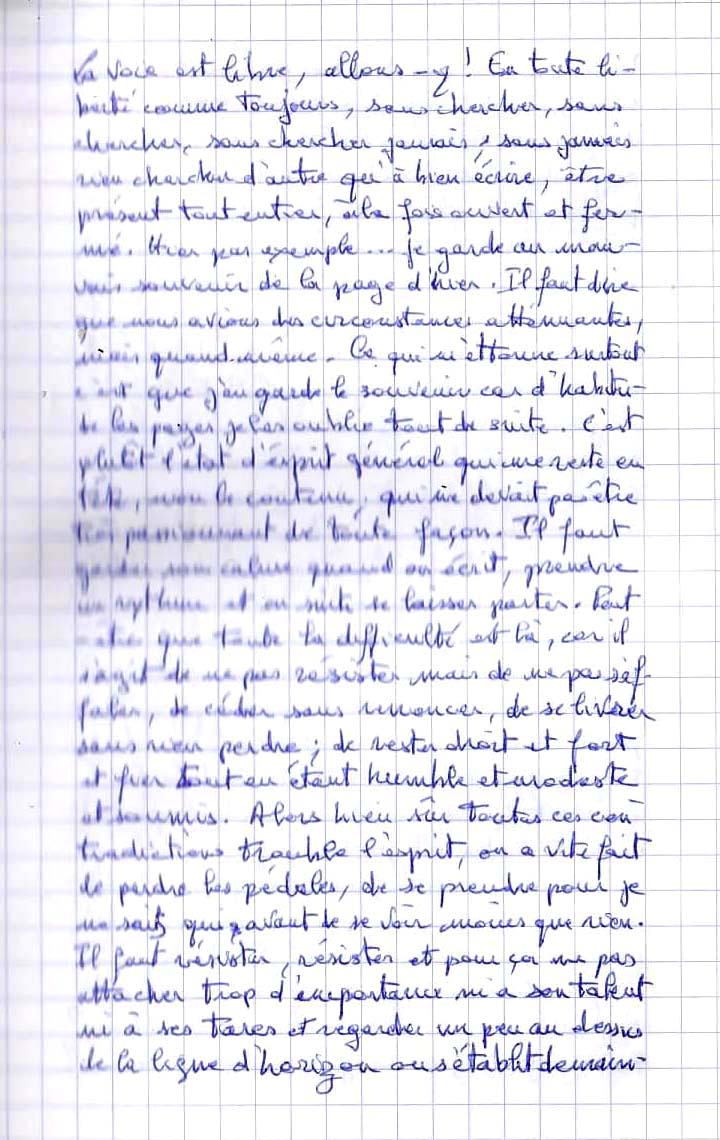 La voie est libre, allons-y ! En toute li-
berté comme toujours, sans chercher, sans
chercher, sans chercher jamais, sans jamais
rien chercher d'autre qu'à bien écrire, être
présent tout entier, à la fois ouvert et fer-
mé. Hier par exemple... je garde un mau-
vais souvenir de la page d'hier. Il faut dire
que nous avions des circonstances atténuantes,
mais quand même. Ce qui m'éttonne surtout
c'est que j'en garde le souvenir car d'habitu-
de les pages je les oublie tout de suite. C'est
plutôt l'état d'ésprit général qui me reste en
tête, non le contenu, qui ne devait pas être
très passionnant de toute façon. Il faut
garder son calme quand on écrit, prendre
un rythme et en suite se laisser porter. Peut
être que toute la difficulté est là, car il
s'agit de ne pas résister mais de ne pas s'éf-
faler, de céder sans renoncer, de se livrer
sans rien perdre ; de rester droit et fort
et fier tout en étant humble et modeste
et soumis. Alors bien sûr toutes ces con
tradictions trouble l'ésprit, on a vite fait
de perdre les pédales, de se prendre pour je
ne sais qui avant de se voir moins que rien.
Il faut résister, résister et pour ça ne pas
attacher trop d'emportance ni a son talent
ni à ses tares et regarder un peu au dessus
de la ligne d'horizon ou s'établit demain-